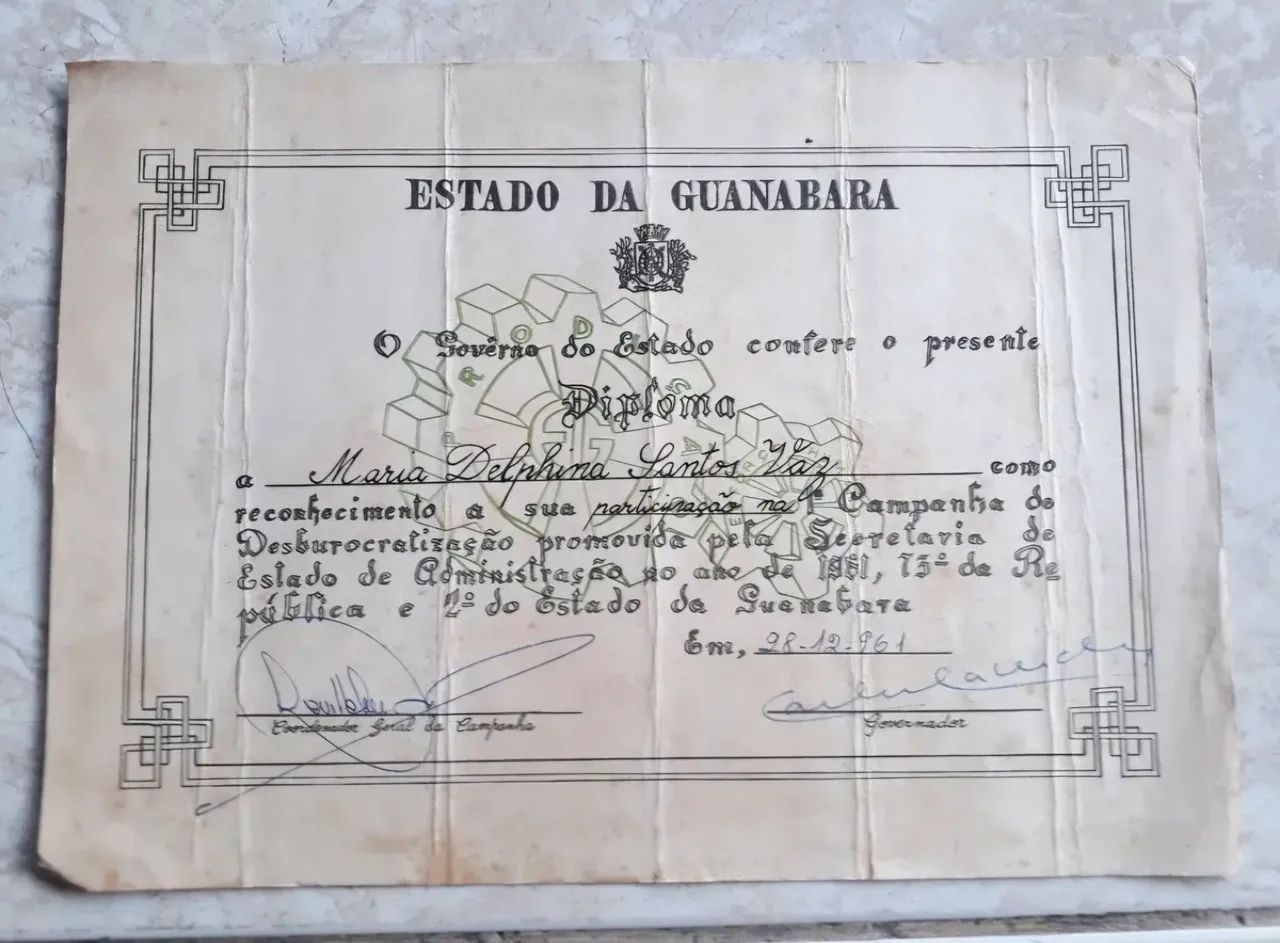 ESTADO DA GUANABARA
O Govêrno do Estado confere o presente
Diplóma
a Maria Delphina Santos Vaz como
reconhecimento a sua participação na 1ª Campanha de
Desburocratização promovida pela Secretaria de
Estado de Administração no ano de 1961, 73º da Re
pública e 2º do Estado da Guanabara
Em, 28-12-961
Coordenador Geral da Campanha
Governador